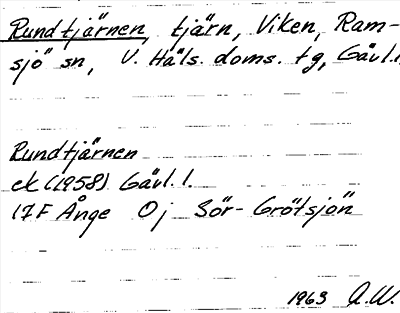 Rundtjärnen, tjärn, Viken, Ram-
sjö sn, V. Häls. doms. tg, Gävl.l.
Rundtjärnen
ek (1958) Gävl. l.
17F Ånge Oj Sör-Grötsjön
1963 A.W.